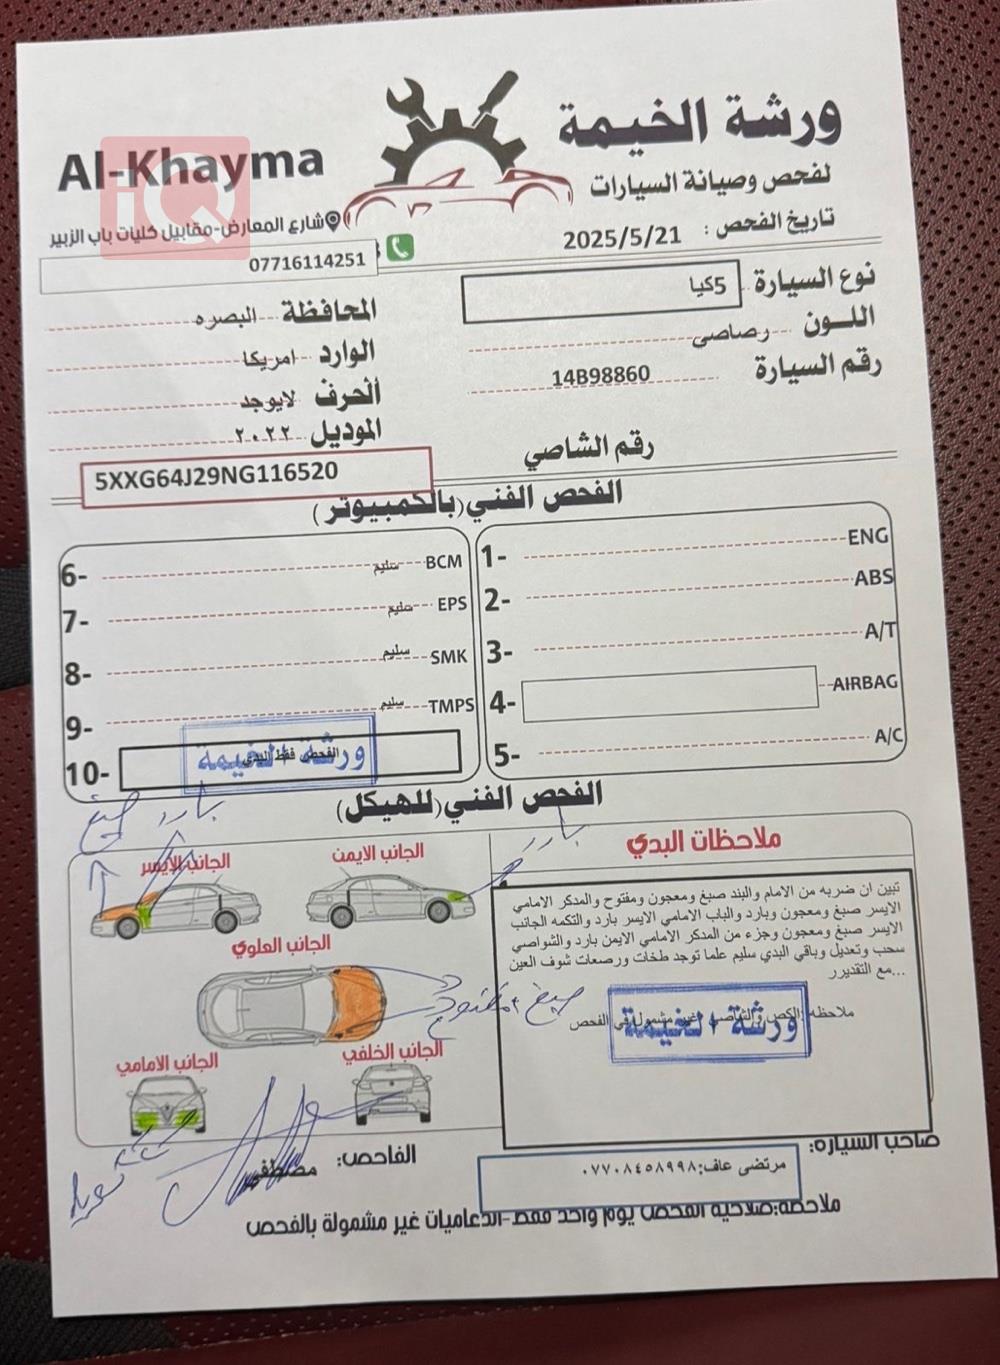 ورشة الخيمة
لفحص وصيانة السيارات
Al-Khayma
iQ
شارع المعارض-مقابيل كليات باب الزبير
07716114251
تاريخ الفحص : 2025/5/21
نوع السيارة 5كيا
اللـــون رصاصي
رقم السيارة 14B98860
المحافظة البصره
الوارد امريكا
الحرف لايوجد
الموديل ٢٠٢٢
رقم الشاصي
5XXG64J29NG116520
الفحص الفني(بالكمبيوتر)
1- ENG
2- ABS
3- A/T
4- AIRBAG
5- A/C
6- سليم BCM
7- سليم EPS
8- سليم SMK
9- سليم TMPS
10- الفحص فقط البدي
ورشة الخيمه
الفحص الفني(للهيكل)
بارد صبغ
بارد
الجانب الايسر
الجانب الايمن
الجانب العلوي
صبغ + مفتوح
الجانب الامامي
الجانب الخلفي
ملاحظات البدي
تبين ان ضربه من الامام والبند صبغ ومعجون ومفتوح والمدكر الامامي
الايسر صبغ ومعجون وبارد والباب الامامي الايسر بارد والتكمه الجانب
الايسر صبغ ومعجون وجزء من المدكر الامامي الايمن بارد والشواصي
سحب وتعديل وباقي البدي سليم علما توجد طخات ورصعات شوف العين
...مع التقديرر
ملاحظه الكص والشاصي غير مشمول في الفحص
ورشة الخيمة
صاحب السيارة:
مرتضى عاف:٠٧٧٠٨٤٥٨٩٩٨
الفاحص: مصطفى
ملاحظة:صلاحية الفحص يوم واحد فقط-الدعاميات غير مشمولة بالفحص